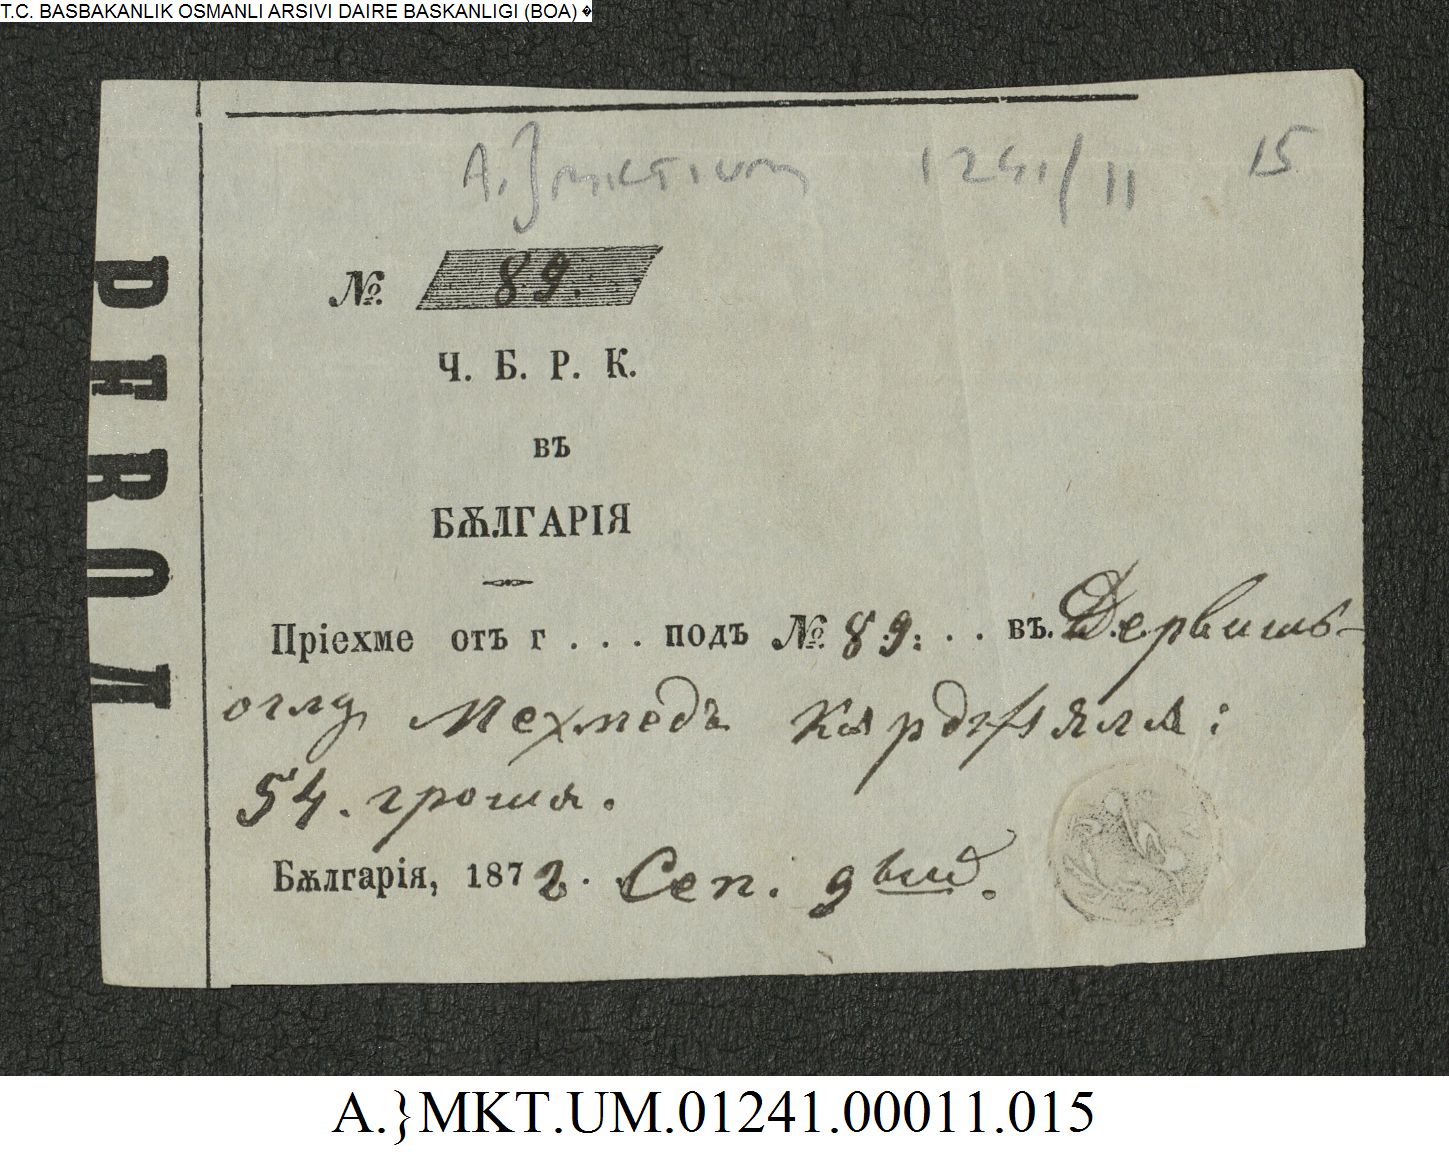 T.C. BASBAKANLIK OSMANLI ARSIVI DAIRE BASKANLIGI (BOA) �
A.}MKT.UM 1241/11 15
№ 89.
Ч. Б. Р. К.
въ
БѪЛГАРІЯ
Пріехме отъ г . . . подъ № 89. . . въ. Дервишь-
оглу Мехмедъ Кѫрджѧля:
54. гроша.
Бѫлгарія, 1872. Сеп. 9
A.}MKT.UM.01241.00011.015